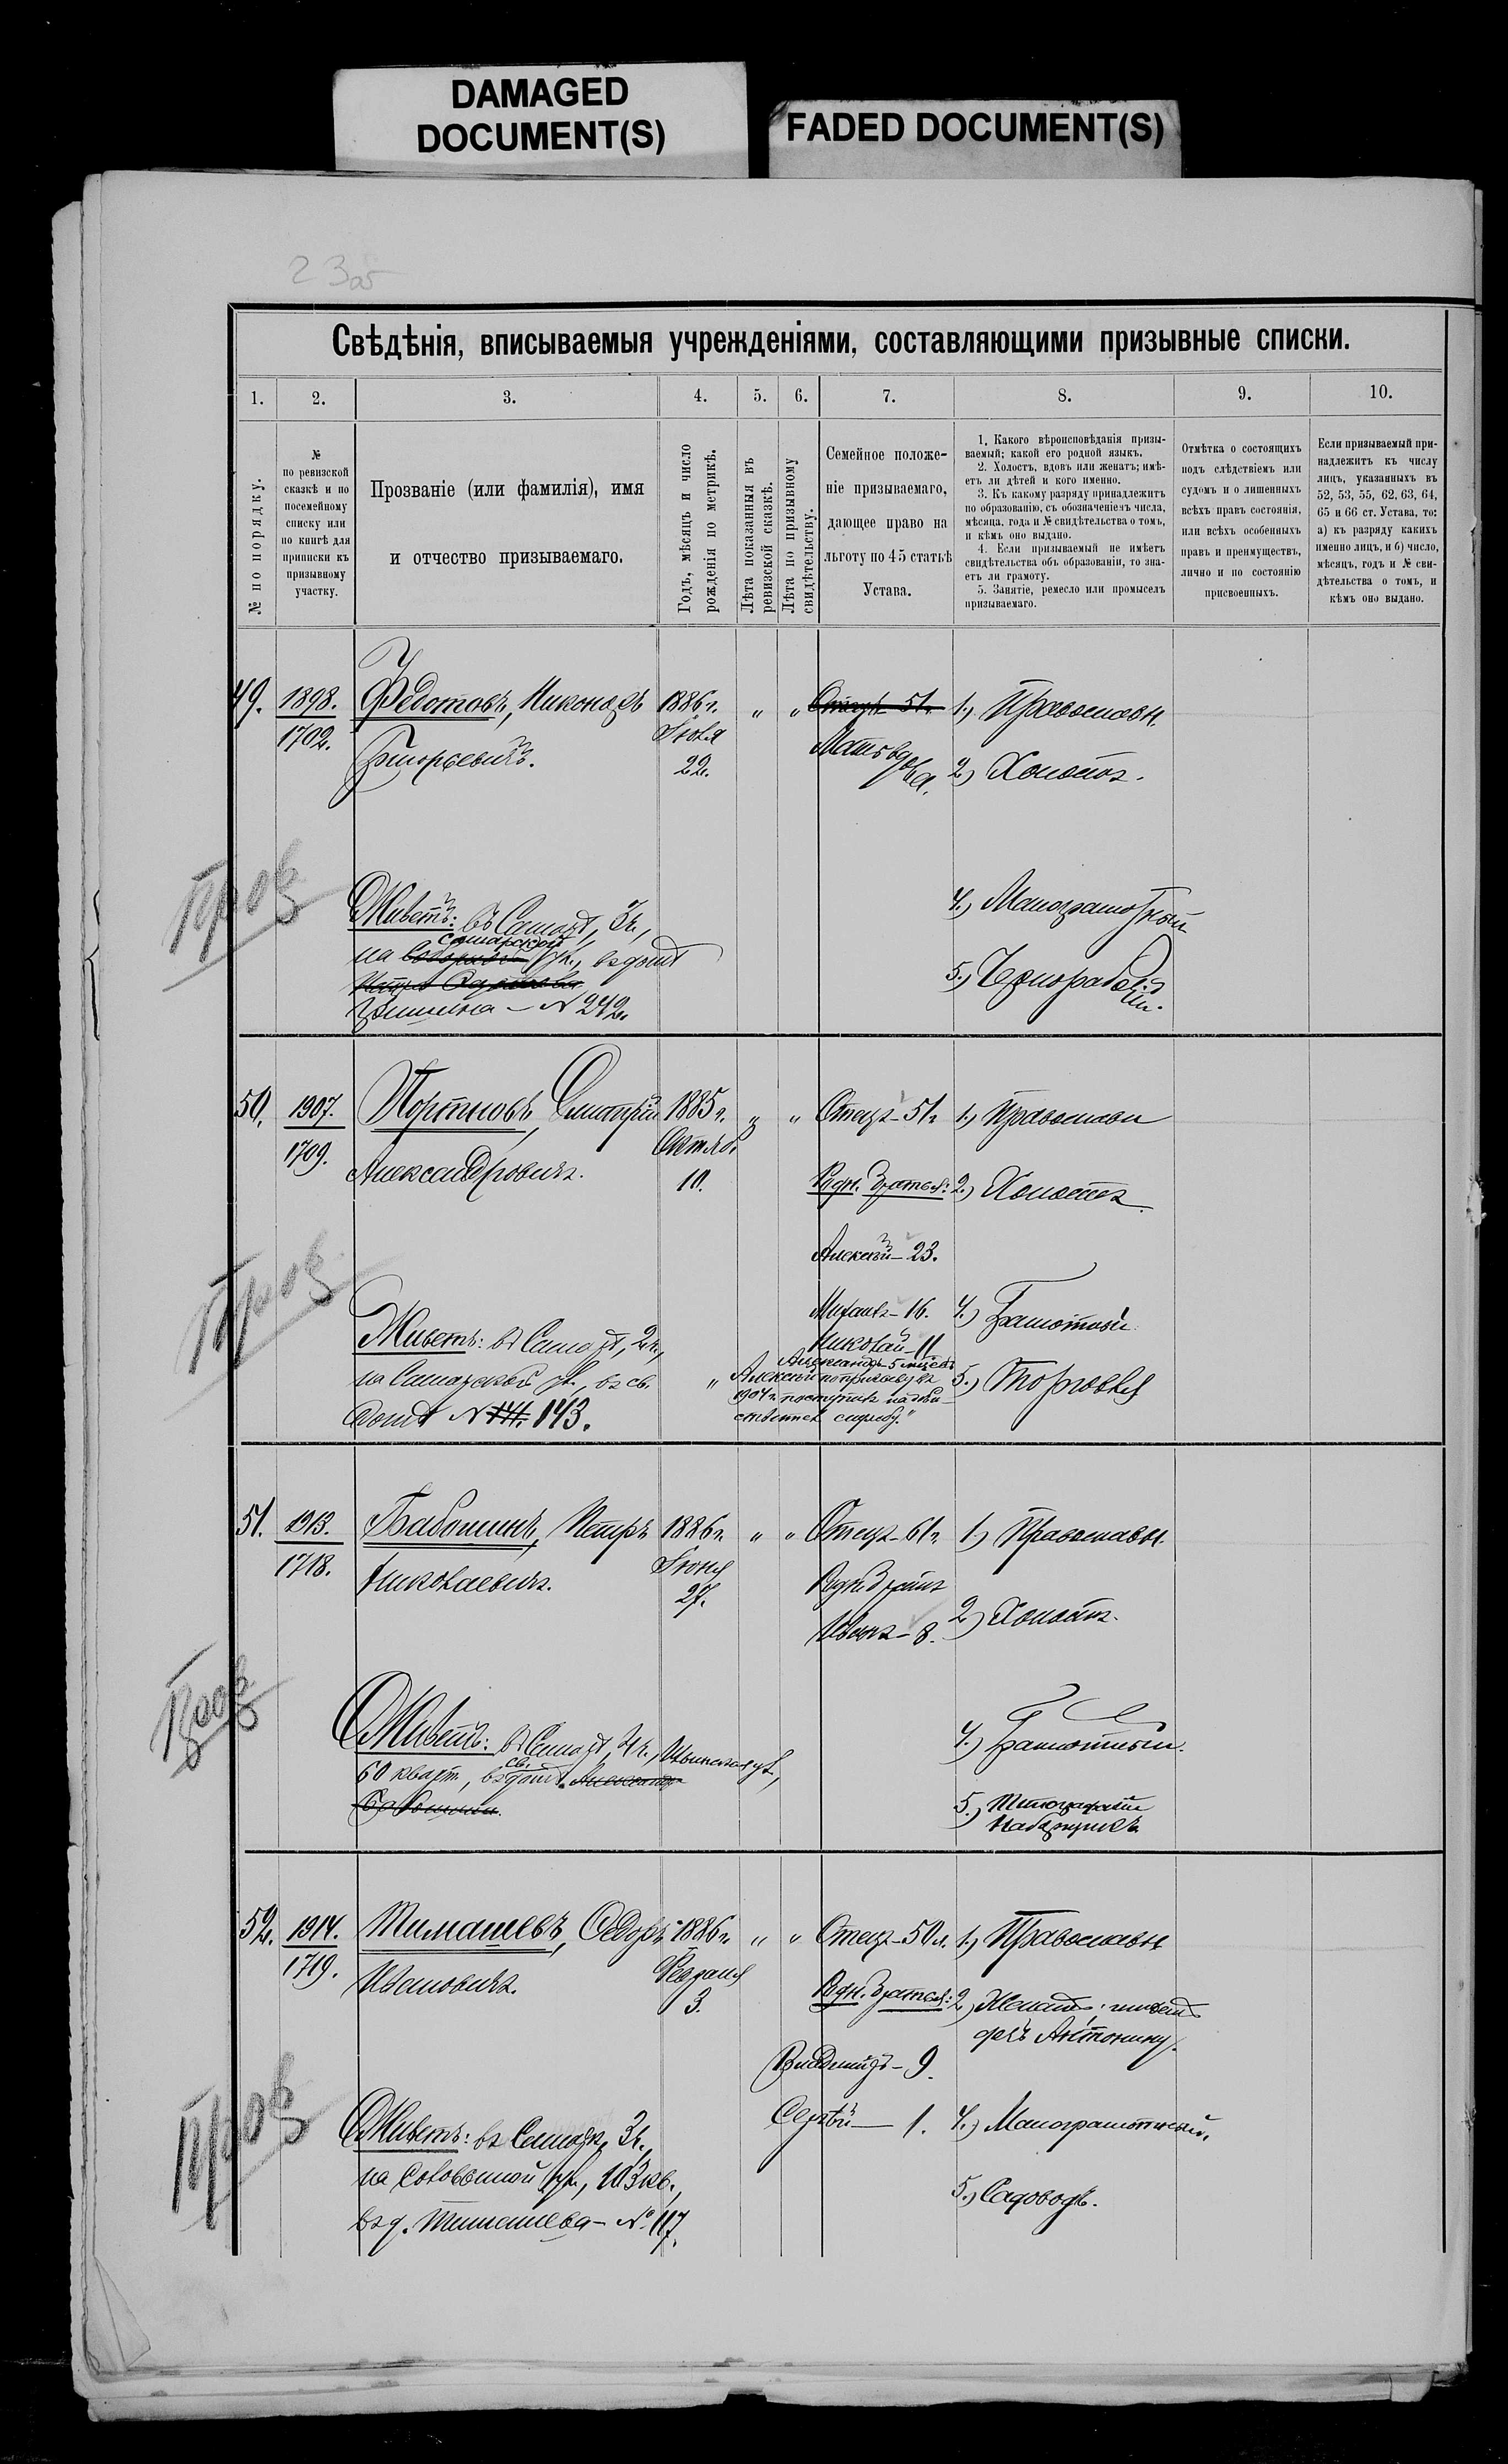 DAMAGED
DOCUMENT(S)
FADED DOCUMENT(S)
23об
Свѣдѣнія, вписываемыя учрежденіями, составляющими призывные списки.
1. 2. 3. 4. 5. 6. 7. 8. 9. 10.
№ по порядку.
№
по ревизской
сказкѣ и по
посемейному
списку или
по книгѣ для
приписки къ
призывному
участку.
Прозваніе (или фамилія), имя
и отчество призываемаго.
Годъ, мѣсяцъ и число
рожденія по метрикѣ.
Лѣта показанныя въ
ревизской сказкѣ.
Лѣта по призывному
свидѣтельству.
Семейное положе-
ніе призываемаго,
дающее право на
льготу по 45 статьѣ
Устава.
1. Какого вѣроисповѣданія призы-
ваемый; какой его родной языкъ.
2. Холостъ, вдовъ или женатъ; имѣ-
етъ ли дѣтей и кого именно.
3. Къ какому разряду принадлежитъ
по образованію, съ обозначеніемъ числа,
мѣсяца, года и № свидѣтельства о томъ,
и кѣмъ оно выдано.
4. Если призываемый не имѣетъ
свидѣтельства объ образованіи, то зна-
етъ ли грамоту.
5. Занятіе, ремесло или промыселъ
призываемаго.
Отмѣтка о состоящихъ
подъ слѣдствіемъ или
судомъ и о лишенныхъ
всѣхъ правъ состоянія,
или всѣхъ особенныхъ
правъ и преимуществъ,
лично и по состоянію
присвоенныхъ.
Если призываемый при-
надлежитъ къ числу
лицъ, указанныхъ въ
52, 53, 55, 62, 63, 64,
65 и 66 ст. Устава, то:
а) къ разряду какихъ
именно лицъ, и б) число,
мѣсяцъ, годъ и № сви-
дѣтельства о томъ, и
кѣмъ оно выдано.
49. 1898. Федотовъ, Никоноръ 1886г. " " Отецъ 51г. 1.) Православн.
1702. Григорьевичъ. Іюля 22. Мать вдова. 2.) Холостъ.
Живетъ: въ Самарѣ, 3ч., 4.) Малограмотный
Самарской
на Соборной ул., въ домѣ 5.) Чернорабочій.
Гришина – N 242.
50. 1907. Портновъ, Дмитрій 1885г. " " Отецъ – 51г 1.) Православн
1709. Александровичъ. Октябр. 10. Родн. братья: 2.) Холостъ
Алексѣй – 23.
Михаилъ – 16. 4.) Грамотный
Живетъ: въ Самарѣ, 2ч., Николай – 11
Александръ – 5 мѣсяц
на Самарской ул., въ св. "Алексѣй по призыву въ 5.) Торговля
1907г. поступилъ на дѣй-
домѣ N 141. 143. ствител службу."
51. 1913. Бабошинъ, Петръ 1886г. " " Отецъ – 61г. 1.) Православн.
1718. Николаевичъ. Іюня 27. Родн. братъ
Иванъ – 8. 2.) Холостъ.
Живетъ: въ Самарѣ, 4ч., Ильинская ул., 4.) Грамотный.
св.
60 кварт., въ домѣ Александра
Бабошина. 5.) Типографій
наборщикъ
52. 1914. Тимашевъ, Федоръ 1886г. " " Отецъ – 50л. 1.) Православн
1719. Ивановичъ. Февраля 3. Родн. братья: 2.) Женатъ; имѣетъ
дочь Антонину.
Владиміръ – 9.
Живетъ: въ Самарѣ, 3ч., Сергѣй – 1. 4.) Малограмотный.
на Соловьиной ул., 103 кв., 5.) Садоводъ.
въ д. Тимашева – № 117.